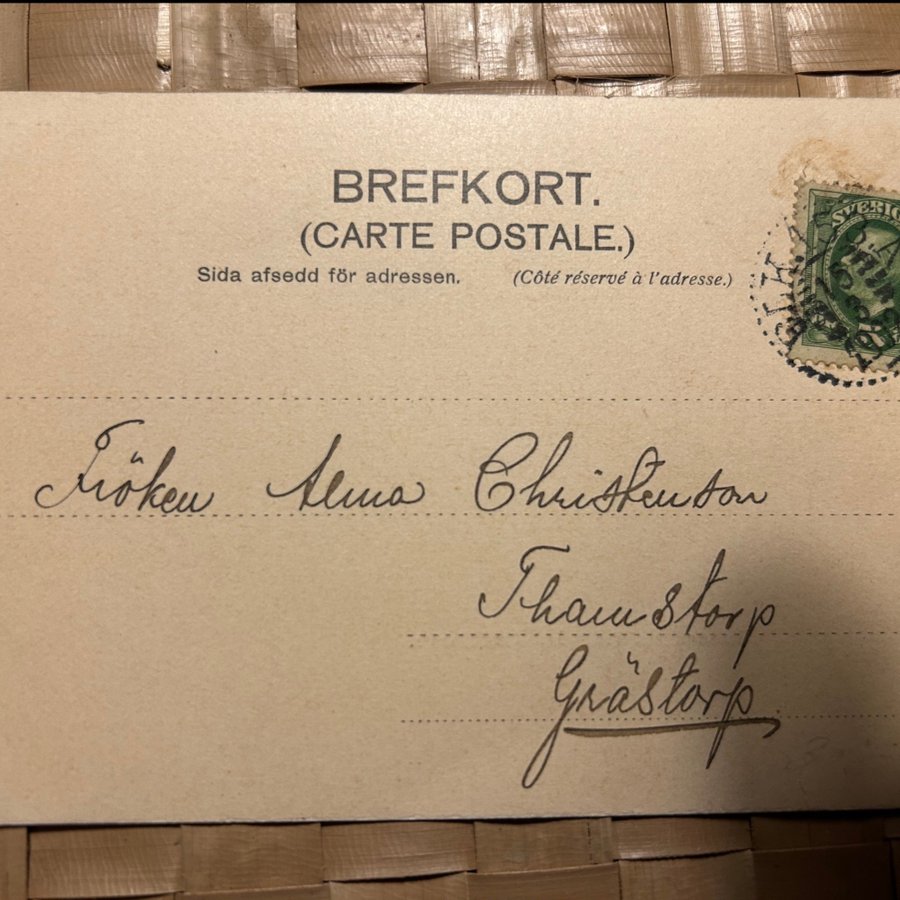 BREFKORT.
(CARTE POSTALE.)
Sida afsedd för adressen. (Côté réservé à l'adresse.)
SVERIG
Fröken Alma Christenson
Thamstorp
Grästorp